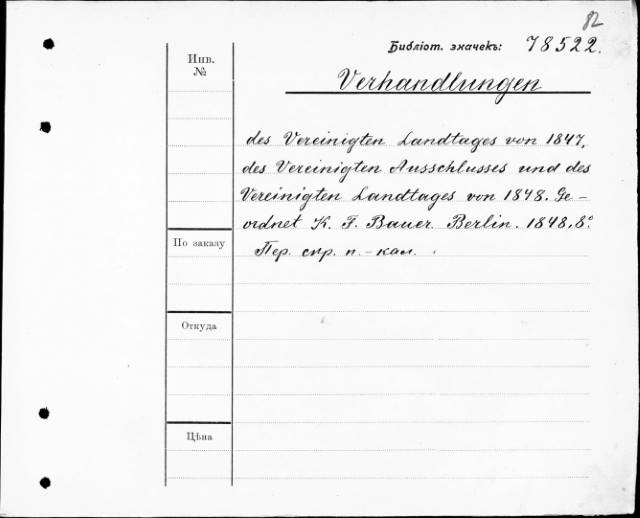 82
Библіот. значекъ: 78522.
Инв.
№
Verhandlungen
des Vereinigten Landtages von 1847,
des Vereinigten Ausschlusses und des
Vereinigten Landtages von 1848. Ge-
ordnet K. F. Bauer. Berlin. 1848. 8°.
По заказу
Пер. скр. п.-кал.
Откуда
Цѣна